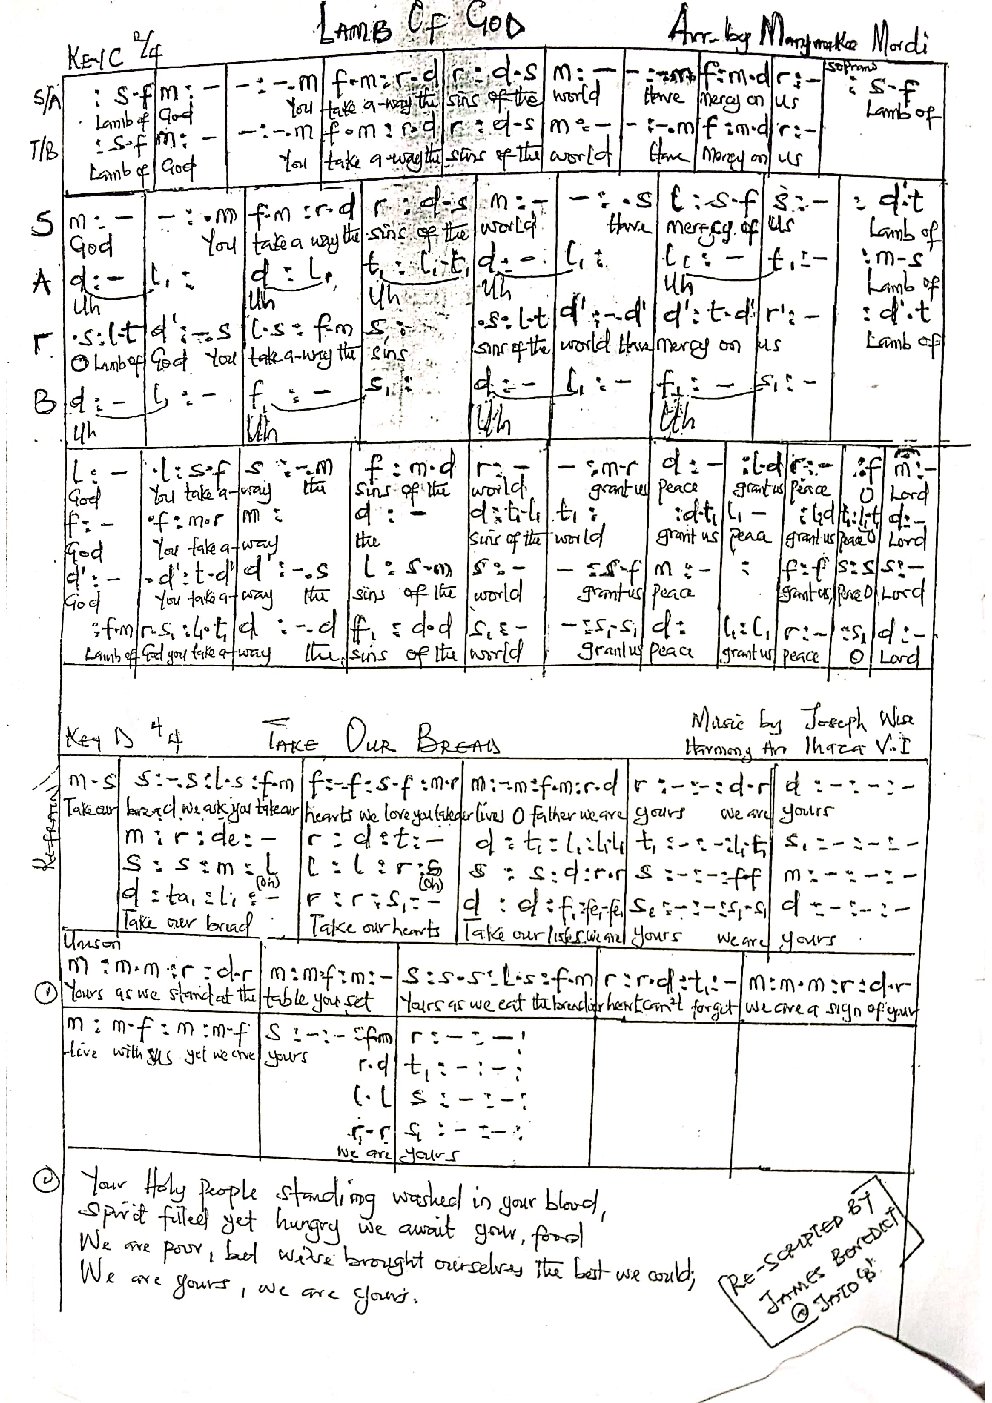 LAMB OF GOD
Key C 2/4
Arr. by Mordi
soprano
S/A : s-f m : - - : -.m f.m : r.d r : d.s m : - - : -.m f : m.d r : - : s-f
Lamb of God You take a-way the sins of the world Have mercy on us Lamb of
T/B : s-f m : - - : -.m f.m : r.d r : d-s m : - - : -.m f : m.d r : -
Lamb of God You take a-way the sins of the world Have mercy on us
S m : - - : .m f.m : r.d r : d-s m : - - : .s l : s.f s : - : d't
God You take a way the sins of the world Have mercy of us Lamb of
A d : - l₁ : d : l₁ t₁ : l₁-t₁ d : - l₁ : l₁ : - t₁ : - : m-s
Uh Uh Uh Uh Uh Lamb of
T .s : l.t d' : -.s l.s : f.m s : .s : l.t d' : -.d' d' : t.d' r' : - : d'.t
O Lamb of God You take a-way the sins sins of the world Have mercy on us Lamb of
B d : - l₁ : - f₁ : - s₁ : d : - l₁ : - f₁ : - s₁ : -
Uh Uh Uh Uh
l : - .l : s.f s : -.m f : m.d r : - - : m-r d : - : l.d r : - : f m : -
God You take a-way the sins of the world grant us peace grant us peace O Lord
f : - .f : m.r m : d : - d : t₁-l₁ t₁ : : d.t₁ l₁ - : l₁d t₁ : l₁.t d : -
God You take a-way the sins of the world grant us peace grant us peace O Lord
d' : - .d' : t.d' d' : -.s l : s-m s : - - : s-f m : - : f : f s : s s : -
God You take a-way the sins of the world grant us peace grant us peace O Lord
: f.m r.s₁ : l₁.t₁ d : -.d f₁ : d.d s₁ : - - : s₁-s₁ d : l₁ : l₁ r : - : s₁ d : -
Lamb of God you take a-way the sins of the world grant us peace grant us peace O Lord
Key D 4/4 TAKE OUR BREAD
Music by Joseph Wise
Harmony Arr Ihaza V.I
Refrain
m.s s : -.s : l.s : f.m f : -.f : s.f : m.r m : -.m : f.m : r.d r : - : - : d.r d : - : - : -
Take our bread we ask you take our hearts we love you take our lives O father we are yours we are yours
m : r : de : - r : d : t : - d : t₁ : l₁ : l₁.l₁ t₁ : - : - : l₁.t₁ s₁ : - : - : -
s : s : m : l l : l : r : s s : s : d : r.r s : - : - : f.f m : - : - : -
(oh) (oh)
d : ta₁ : l₁ : - r : r : s₁ : - d : d : f₁ : fe₁-fe₁ s₁ : - : - : s₁-s₁ d : - : - : -
Take our bread Take our hearts Take our we are yours we are yours
Unison
① m : m.m : r : d.r m : m.f : m : - s : s.s : l.s : f.m r : r.d : t₁ : - m : m.m : r : d.r
Yours as we stand at the table you set Yours as we eat the bread our heart can't forget we are a sign of your
m : m-f : m : m-f s : - : - : f.m r : - : - : -
live with us yet we are yours
r.d t₁ : - : - : -
l.l s : - : - : -
r.r s₁ : - : - : -
we are yours
② Your Holy people standing washed in your blood,
Spirit filled yet hungry we await your, food
We are poor, but we've brought ourselves the best we could;
We are yours, we are yours.
RE-SCRIPTED BY
JAMES BENEDICT
@ JATO 'B'